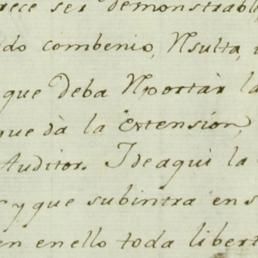 rece ser demonstrabl
do combenio, Rsulta,
que Deba Rportàr la
que dà la extensión,
Auditor. I de aqui la
y que subintra en s
en en ello toda libert